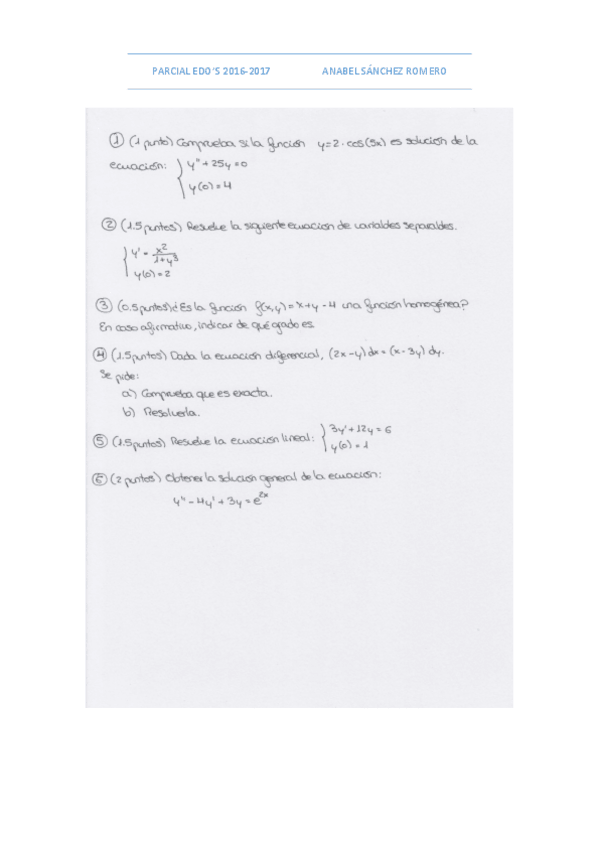 PARCIAL EDO'S 2016-2017 ANABEL SÁNCHEZ ROMERO
① (1 punto) Comprueba si la función y=2·cos(5x) es solución de la
ecuación: { y''+25y=0
y(0)=4
② (1.5 puntos) Resuelve la siguiente ecuación de variables separables.
{ y' = x²/(1+y³)
y(0)=2
③ (0.5 puntos) ¿Es la función f(x,y)=x+y-4 una función homogénea?
En caso afirmativo, indicar de qué grado es.
④ (1.5 puntos) Dada la ecuación diferencial, (2x-y)dx=(x-3y)dy.
Se pide:
a) Comprueba que es exacta.
b) Resolverla.
⑤ (1.5 puntos) Resuelve la ecuación lineal: { 3y'+12y=6
y(0)=1
⑥ (2 puntos) Obtener la solución general de la ecuación:
y''-4y'+3y=e^{2x}